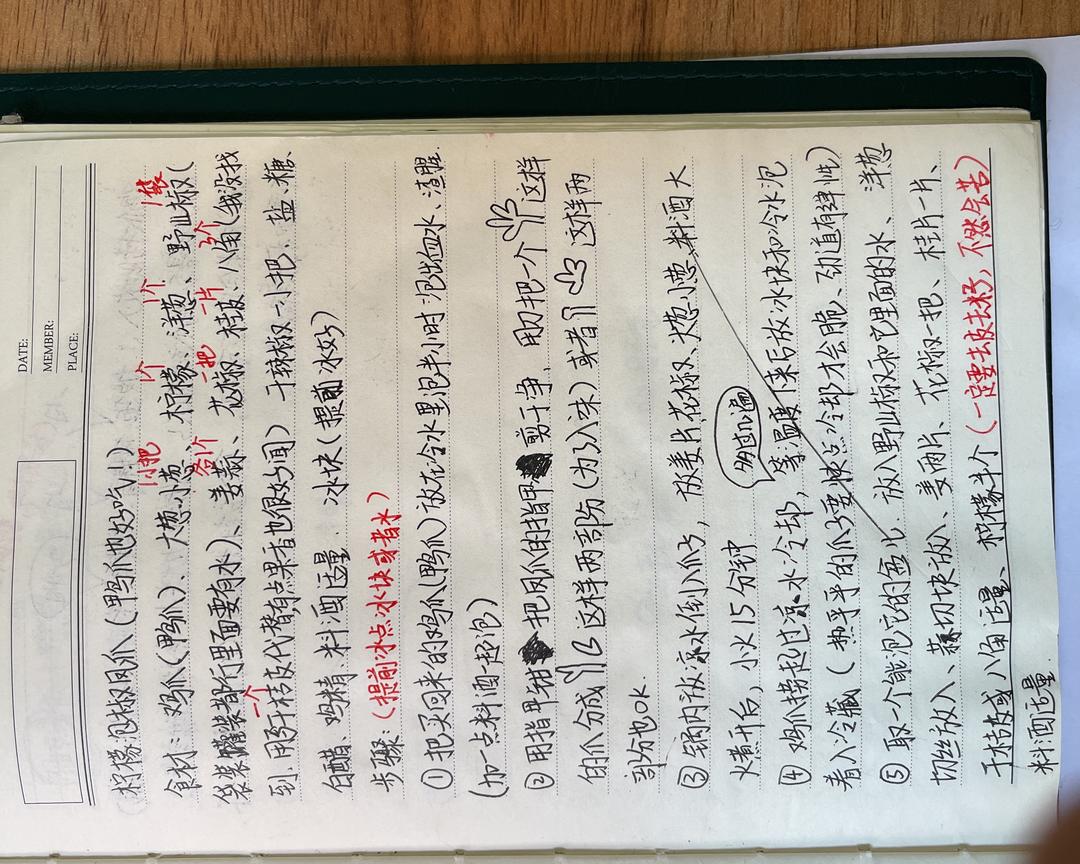 DATE:
MEMBER:
PLACE:
柠檬泡椒凤爪（鸭爪也好吃！）
1小把 1个 1个 1袋
食材：鸡爪（鸭爪）、大葱小葱、柠檬、洋葱、野山椒（
各1个 一把 一片 3个
袋装罐装都行里面要有水）、姜蒜、花椒、桂皮、八角（我没找
一个
到，用了干桔皮代替有点果香也很好闻）干辣椒一小把、盐、糖、
白醋、鸡精、料酒适量. 冰块（提前冰好）
步骤：（提前冰点冰块或者水）
① 把买回来的鸡爪（鸭爪）放在冷水里泡半小时 泡出血水、渣腥.
（加一点料酒一起泡）
② 用指甲钳 把凤爪的指甲 剪干净. 用刀把一个 这样
的爪分成 这样两部份（为了入味）或者 这样两
部分也OK.
③ 锅内放凉水倒入爪子，放姜片,花椒、大葱小葱,料酒 大
火煮开后，小火15分钟
多过几遍
④ 鸡爪捞起过凉水冷却，等温度下来后放冰块和冷水泡
着入冷藏（热乎乎的爪子要快点冷却才会脆、劲道有弹性）
⑤ 取一个能泡它的盒子. 放入野山椒和它里面的水、洋葱
切丝放入、蒜切块放入、姜两片、花椒一把、桂片一片、
干桔皮或八角适量、柠檬半个（一定要去皮去籽，不然会苦）
料酒适量